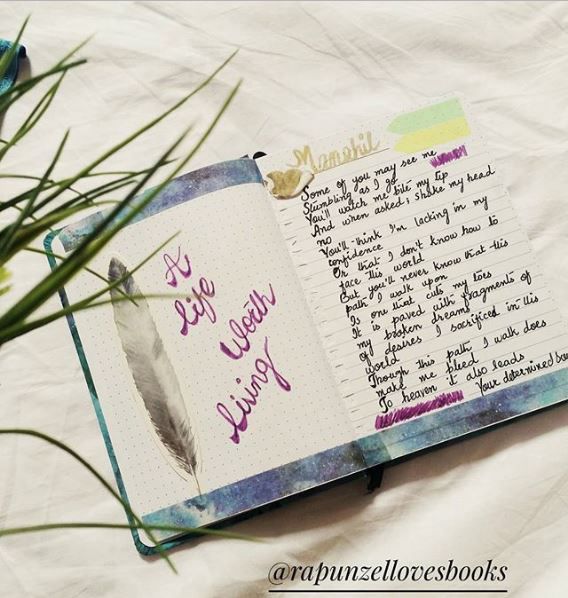 A
life
worth
living
Mamahil
Some of you may see me
Stumbling as I go
You'll watch me bite my lip
And when asked, shake my head
no
You'll think I'm lacking in my
confidence
Or that I don't know how to
face this world
But you'll never know that this
path I walk upon
Is one that cuts my toes
It is paved with fragments of
my broken dreams
of desires I sacrificed in this
world
Though this path I walk does
make me bleed
To heaven it also leads
Your determined
@rapunzellovesbooks